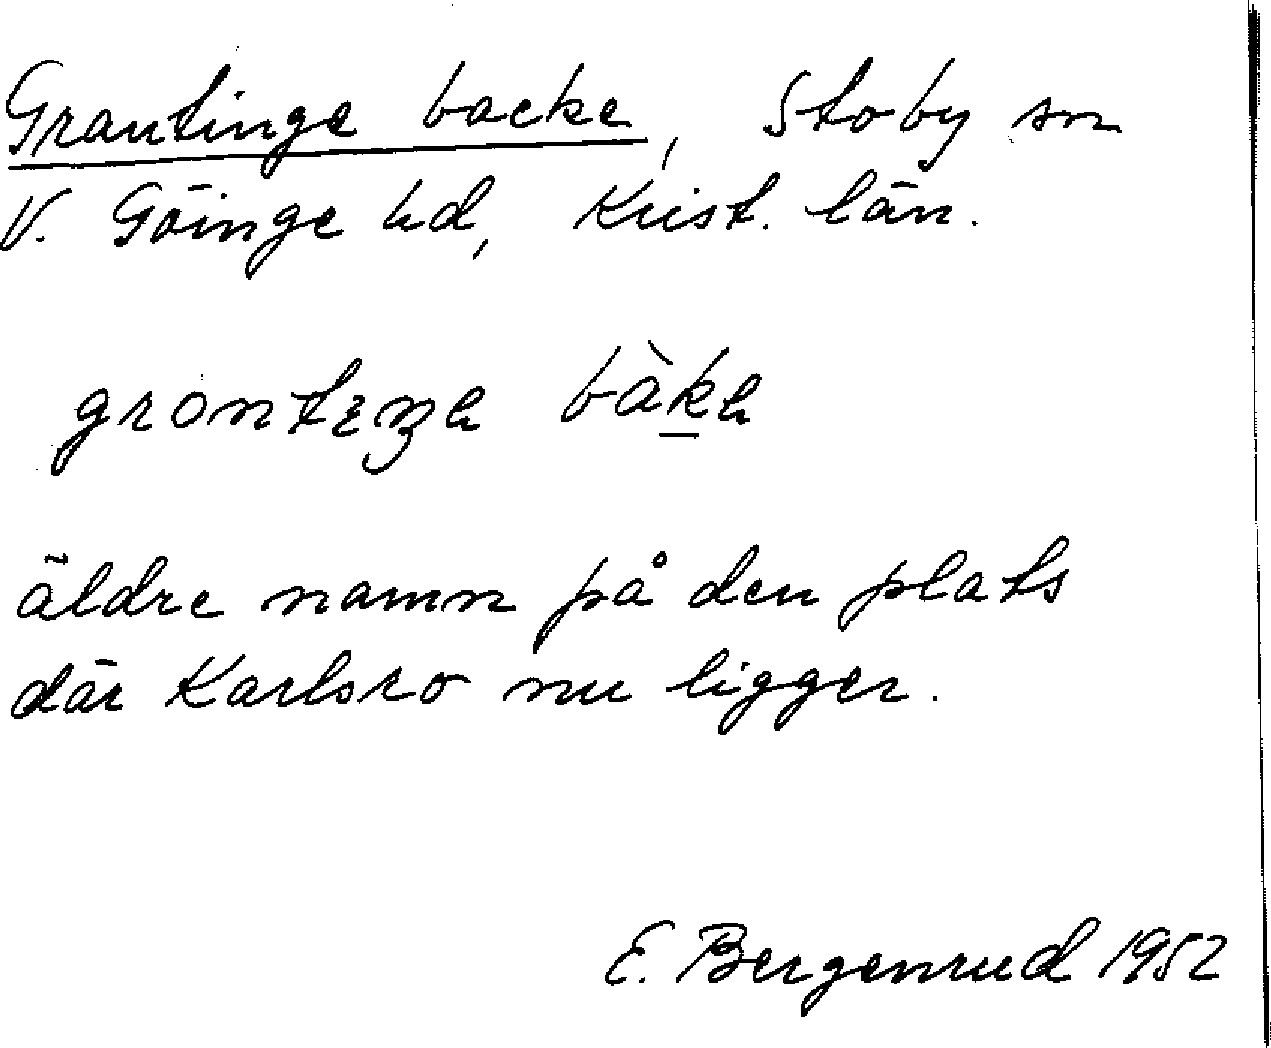 Grantinge backe, Stoby sn
V. Göinge hd, Krist. län.
grontɛŋə bàkə
äldre namn på den plats
där Karlsro nu ligger.
E. Bergenrud 1952